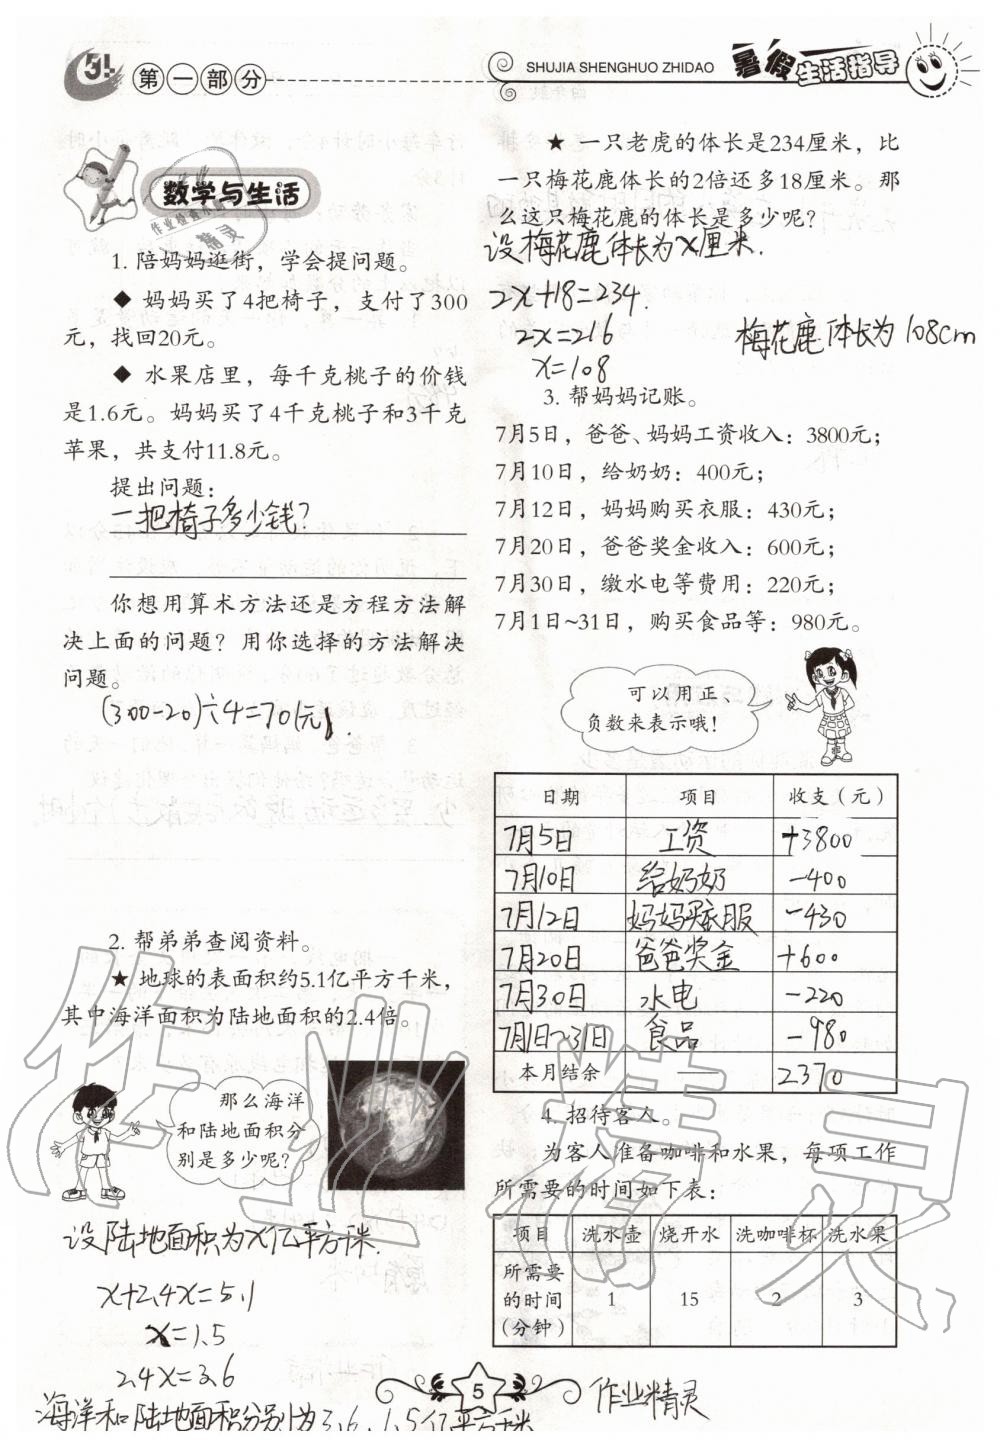 第一部分
SHUJIA SHENGHUO ZHIDAO
暑假生活指导
数学与生活
1. 陪妈妈逛街，学会提问题。
◆ 妈妈买了4把椅子，支付了300
元，找回20元。
◆ 水果店里，每千克桃子的价钱
是1.6元。妈妈买了4千克桃子和3千克
苹果，共支付11.8元。
提出问题：
一把椅子多少钱？
你想用算术方法还是方程方法解
决上面的问题？用你选择的方法解决
问题。
(300-20)÷4=70(元)
2. 帮弟弟查阅资料。
★ 地球的表面积约5.1亿平方千米，
其中海洋面积为陆地面积的2.4倍。
那么海洋
和陆地面积分
别是多少呢？
设陆地面积为x亿平方千米.
x+2.4x=5.1
x=1.5
2.4x=3.6
海洋和陆地面积分别为3.6，1.5亿平方千米
★ 一只老虎的体长是234厘米，比
一只梅花鹿体长的2倍还多18厘米。那
么这只梅花鹿的体长是多少呢？
设梅花鹿体长为x厘米.
2x+18=234.
2x=216
x=108
梅花鹿体长为108cm
3. 帮妈妈记账。
7月5日，爸爸、妈妈工资收入：3800元；
7月10日，给奶奶：400元；
7月12日，妈妈购买衣服：430元；
7月20日，爸爸奖金收入：600元；
7月30日，缴水电等费用：220元；
7月1日~31日，购买食品等：980元。
可以用正、
负数来表示哦！
日期 项目 收支（元）
7月5日 工资 +3800
7月10日 给奶奶 -400
7月12日 妈妈买衣服 -430
7月20日 爸爸奖金 +600
7月30日 水电 -220
7月1日~31日 食品 -980
本月结余 —— 2370
4. 招待客人。
为客人准备咖啡和水果，每项工作
所需要的时间如下表：
项目 洗水壶 烧开水 洗咖啡杯 洗水果
所需要
的时间
(分钟) 1 15 2 3
5
作业精灵
作业精灵